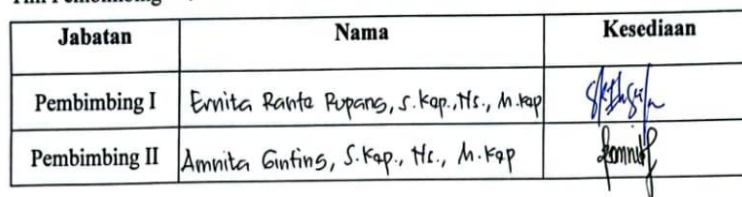 Jabatan Nama Kesediaan
Pembimbing I Ernita Rante Rupang, S.Kep., Ns., M.Kep
Pembimbing II Amnita Ginting, S.Kep., Ns., M.Kep